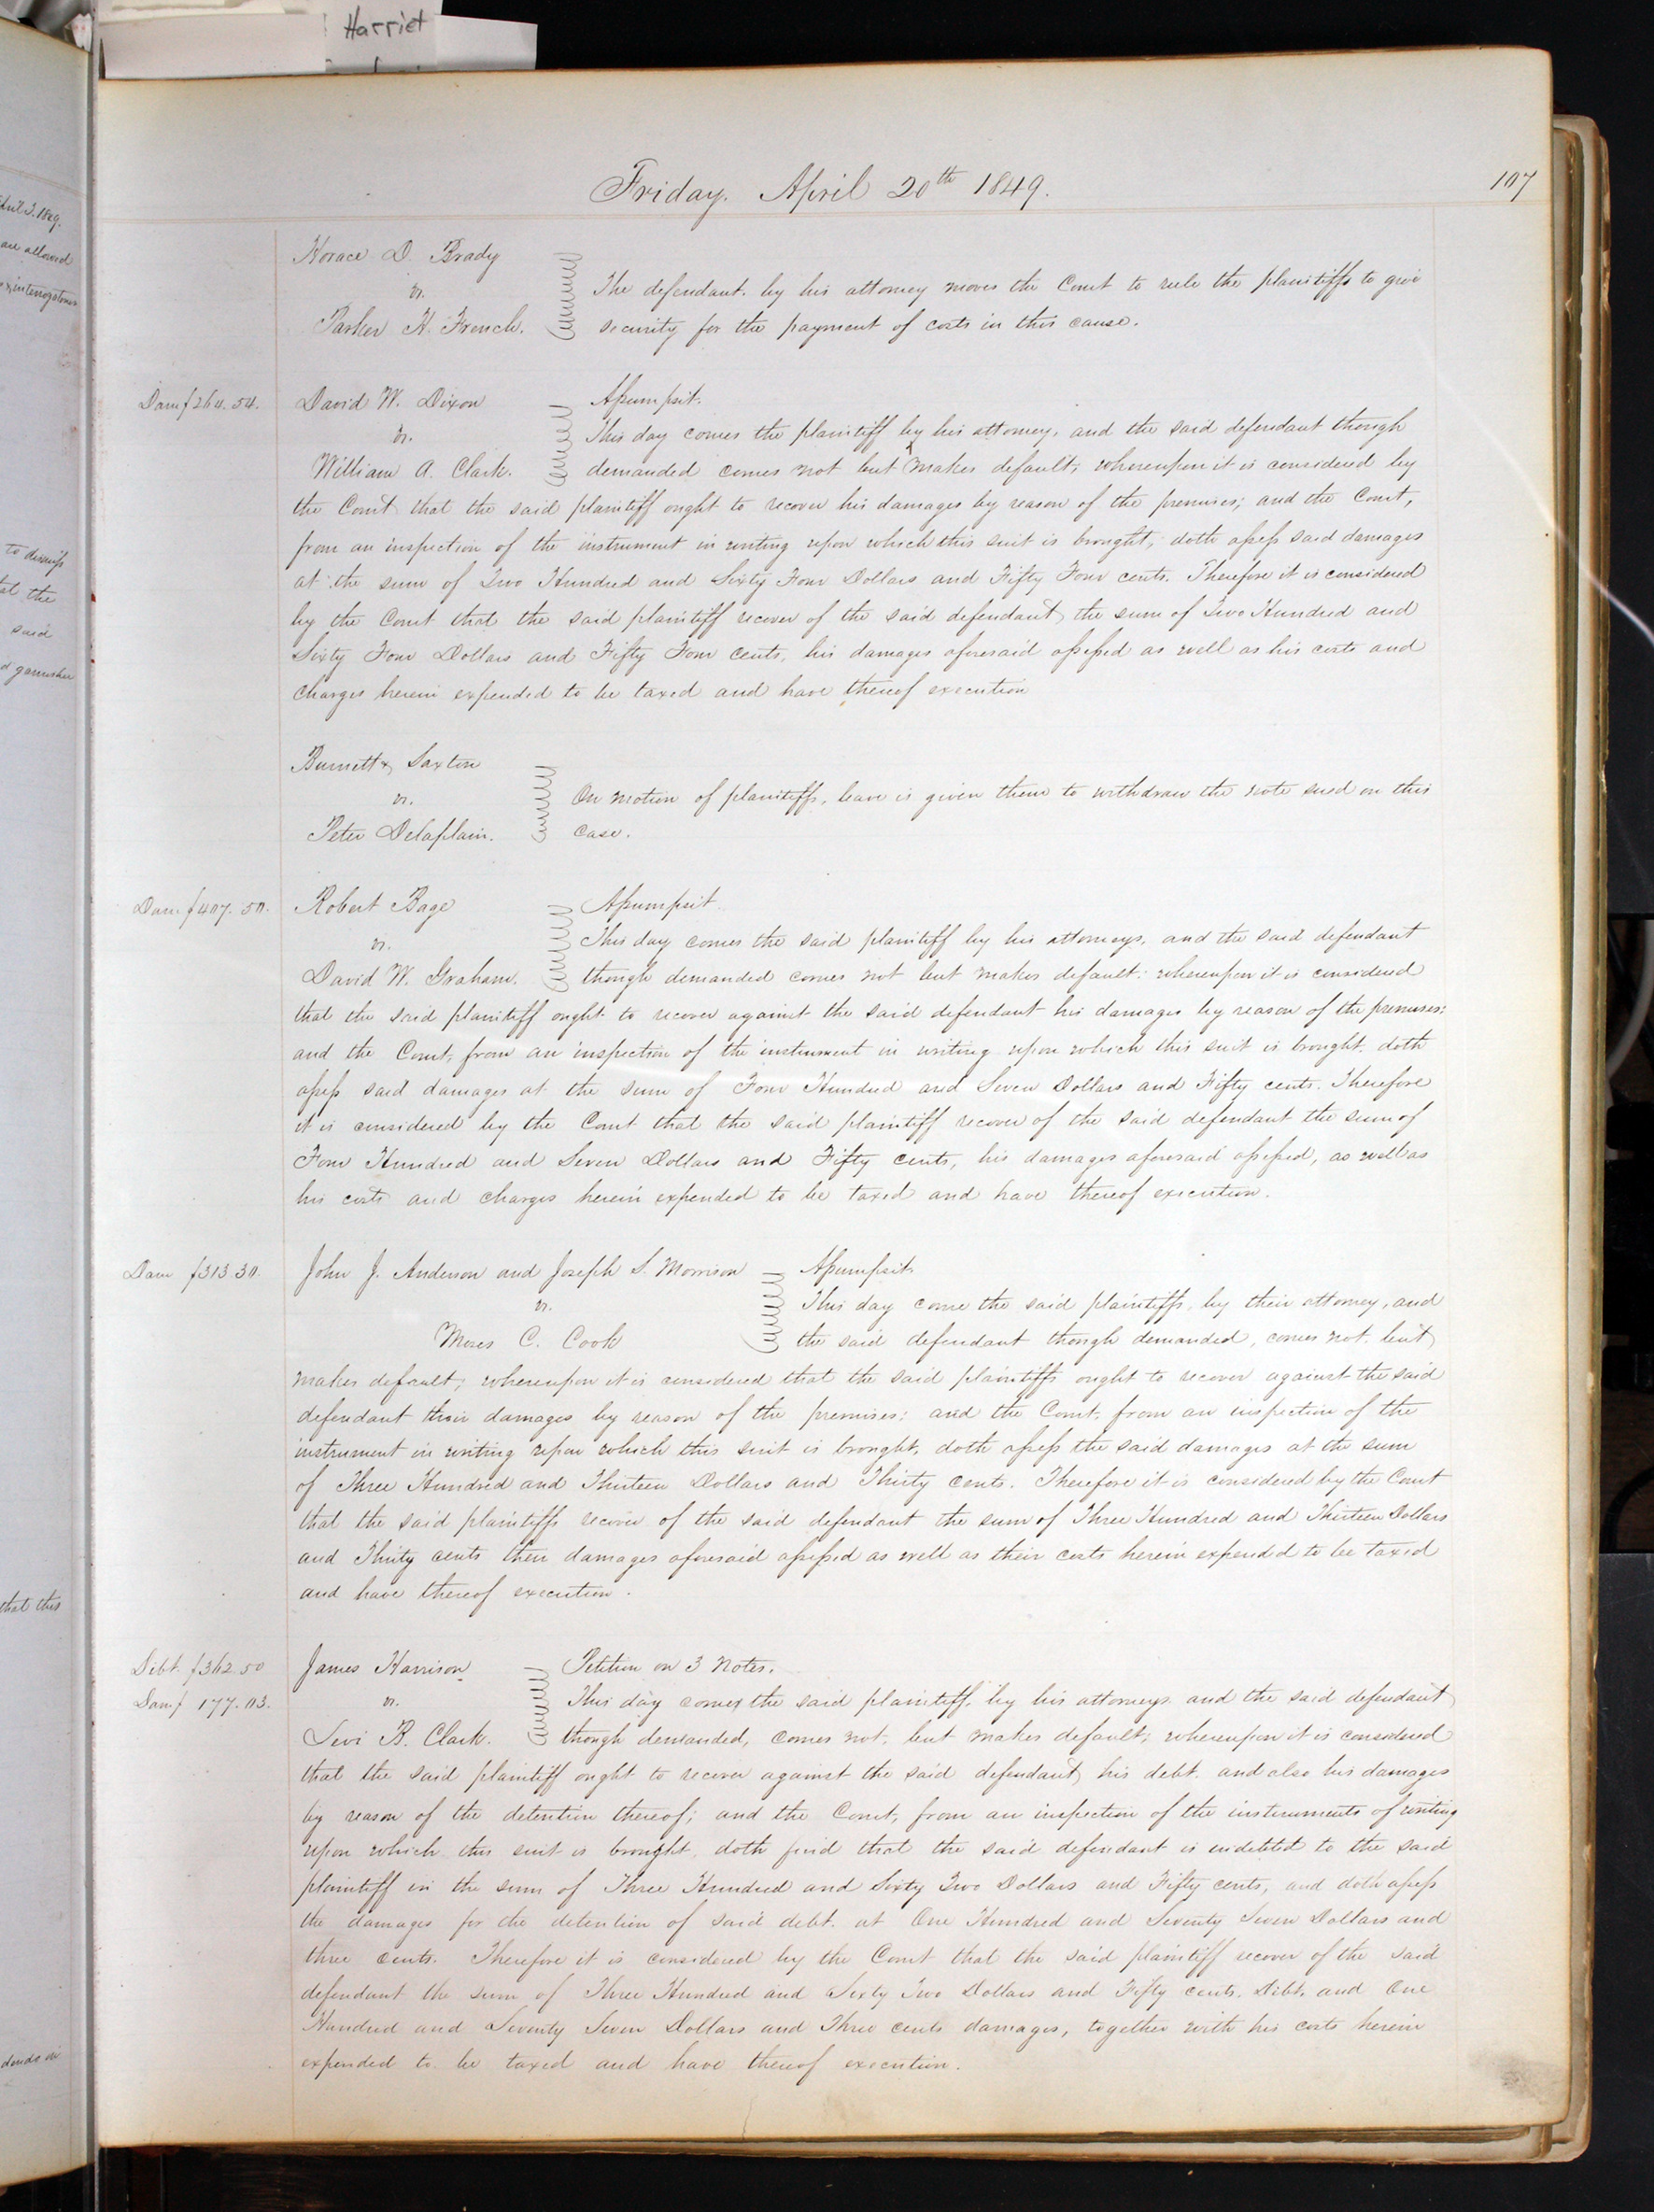 Harriet
Friday. April 20th 1849.
107
Horace D. Brady
vs.
Parker H. French.
The defendant. by his attorney moves the Court to rule the plaintiffs to give
security for the payment of costs in this cause.
Dam $264.54.
David W. Dixon
vs.
William A. Clark.
Assumpsit.
This day comes the plaintiff by his attorney, and the said defendant though
demanded comes not but makes default; whereupon it is considered by
the Court that the said plaintiff ought to recover his damages by reason of the premises; and the Court,
from an inspection of the instrument in writing upon which this suit is brought, doth assess said damages
at the sum of Two Hundred and Sixty Four Dollars and Fifty Four cents. Therefore it is considered
by the Court that the said plaintiff recover of the said defendant the sum of Two Hundred and
Sixty Four Dollars and Fifty Four cents, his damages aforesaid assessed as well as his costs and
charges herein expended to be taxed and have thereof execution
Burnett & Saxton
vs.
Peter Delaplain.
On motion of plaintiffs, leave is given them to withdraw the note sued on this
case.
Dam $407.50.
Robert Bage
vs.
David W. Graham.
Assumpsit
This day comes the said plaintiff by his attorneys, and the said defendant
though demanded comes not but makes default: whereupon it is considered
that the said plaintiff ought to recover against the said defendant his damages by reason of the premises:
and the Court, from an inspection of the instrument in writing upon which this suit is brought, doth
assess said damages at the sum of Four Hundred and Seven Dollars and Fifty cents. Therefore
it is considered by the Court that the said plaintiff recover of the said defendant the sum of
Four Hundred and Seven Dollars and Fifty cents, his damages aforesaid assessed, as well as
his costs and charges herein expended to be taxed and have thereof execution.
Dam $313.30.
John J. Anderson and Joseph S. Morrison
vs.
Moses C. Cook
Assumpsit
This day come the said plaintiffs, by their attorney, and
the said defendant though demanded, comes not but
makes default; whereupon it is considered that the said plaintiffs ought to recover against the said
defendant their damages by reason of the premises: and the Court, from an inspection of the
instrument in writing upon which this suit is brought, doth assess the said damages at the sum
of Three Hundred and Thirteen Dollars and Thirty cents. Therefore it is considered by the Court
that the said plaintiffs recover of the said defendant the sum of Three Hundred and Thirteen Dollars
and Thirty cents their damages aforesaid assessed as well as their costs herein expended to be taxed
and have thereof execution.
Debt. $362.50
Dam $177.03.
James Harrison
vs.
Levi R. Clark.
Petition on 3 Notes.
This day comes the said plaintiff, by his attorneys and the said defendant
though demanded, comes not, but makes default; whereupon it is considered
that the said plaintiff ought to recover against the said defendant his debt. and also his damages
by reason of the detention thereof; and the Court, from an inspection of the instruments of writing
upon which this suit is brought, doth find that the said defendant is indebted to the said
plaintiff in the sum of Three Hundred and Sixty Two Dollars and Fifty cents, and doth assess
the damages for the detention of said debt. at One Hundred and Seventy Seven Dollars and
three cents. Therefore it is considered by the Court that the said plaintiff recover of the said
defendant the sum of Three Hundred and Sixty Two Dollars and Fifty cents. Debt, and One
Hundred and Seventy Seven Dollars and Three cents damages, together with his costs herein
expended to be taxed and have thereof execution.
are allowed
to dismiss
at the
said
that this